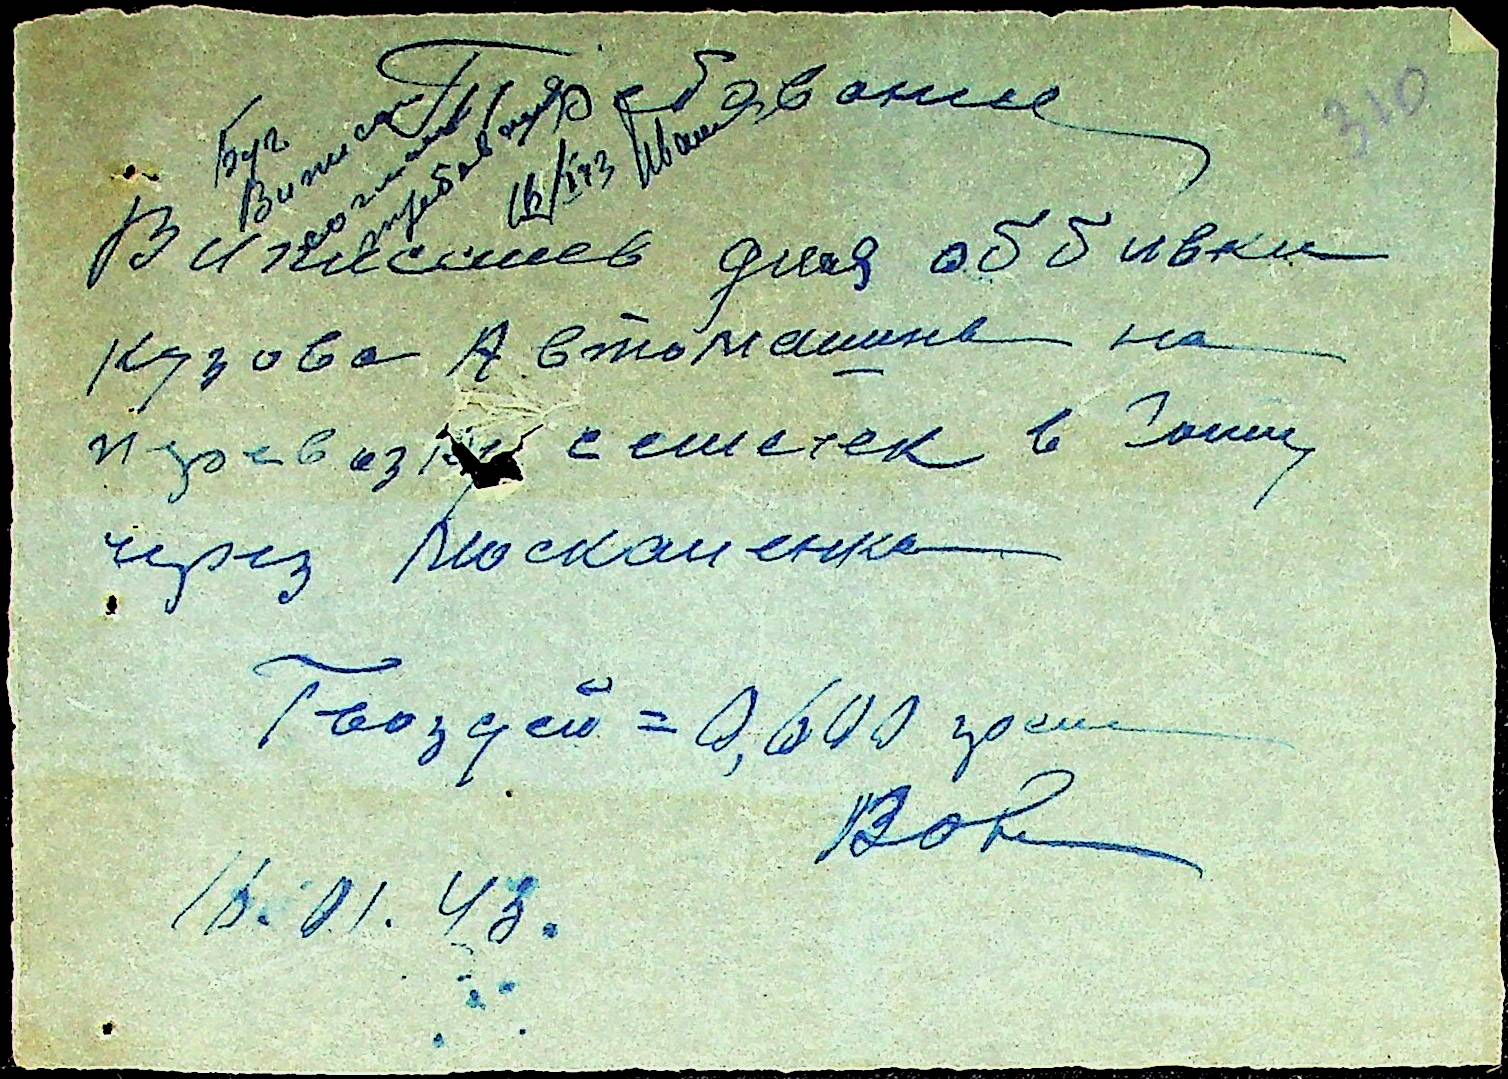 310
Требование
Бух
Виписат
согласно
требования
16/I 43 Иван
Виписать для оббивки
кузова Автомашины на
перевозки семечек в
через Москаленка
Гвоздей = 0,600 грам
16.01.43.